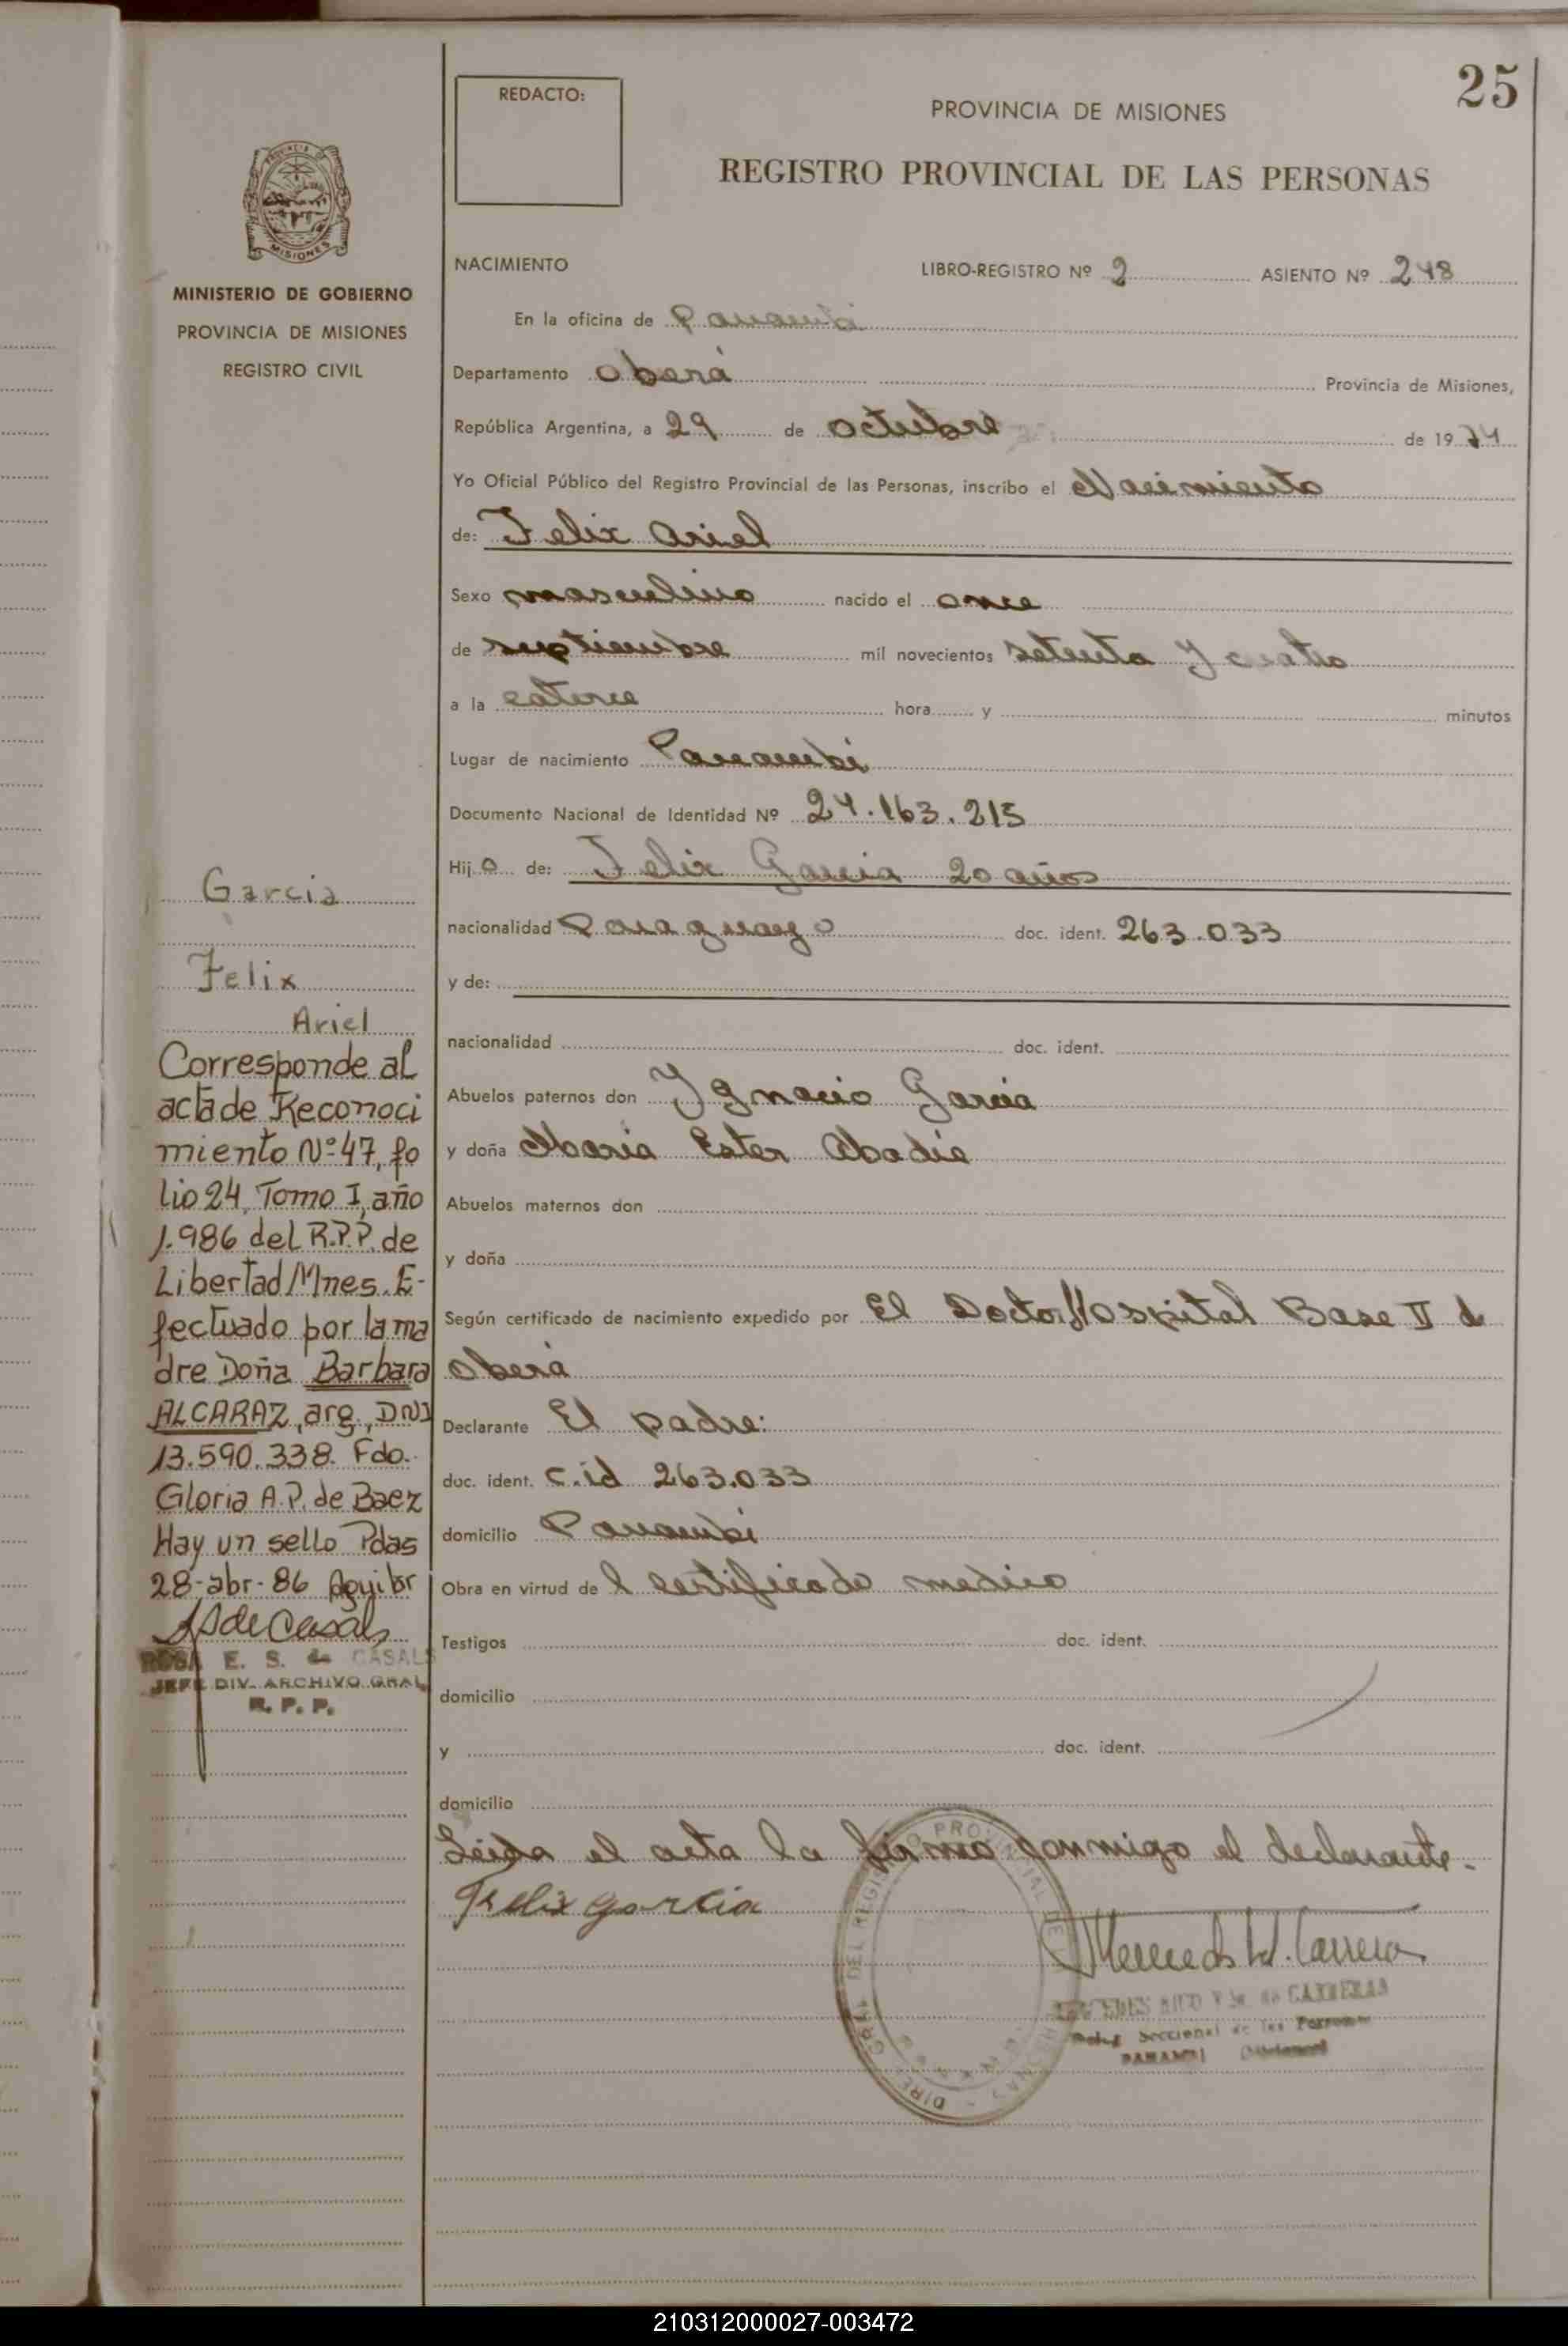 25
REDACTO:
PROVINCIA DE MISIONES
REGISTRO PROVINCIAL DE LAS PERSONAS
MISIONES
MINISTERIO DE GOBIERNO
PROVINCIA DE MISIONES
REGISTRO CIVIL
NACIMIENTO LIBRO-REGISTRO Nº 2 ASIENTO Nº 248
En la oficina de Panambi
Departamento Oberá Provincia de Misiones,
República Argentina, a 29 de octubre de 1974
Yo Oficial Público del Registro Provincial de las Personas, inscribo el Nacimiento
de: Felix Ariel
Sexo masculino nacido el once
de septiembre mil novecientos setenta y cuatro
a la catorce hora y minutos
Lugar de nacimiento Panambi
Documento Nacional de Identidad Nº 24.163.215
Hijo de: Felix Garcia 20 años
nacionalidad Paraguayo doc. ident. 263.033
y de:
nacionalidad doc. ident.
Abuelos paternos don Ygnacio Garcia
y doña Maria Ester Abadie
Abuelos maternos don
y doña
Según certificado de nacimiento expedido por El Doctor Hospital Base II de
Oberá
Declarante El padre:
doc. ident. C.id 263.033
domicilio Panambi
Obra en virtud del certificado medico
Testigos doc. ident.
domicilio
y doc. ident.
domicilio
Leida el acta la firma conmigo el declarante.
Felix Garcia
Garcia
Felix
Ariel
Corresponde al
acta de Reconoci
miento Nº 47, fo
lio 24, Tomo I, año
1.986 del R.P.P. de
Libertad/Mnes. E-
fectuado por la ma
dre Doña Barbara
ALCARAZ, arg., DNI
13.590.338. Fdo.
Gloria A.P. de Baez
Hay un sello Pdas
28-abr-86 Aguilar
ROSA E. S. de CASALS
JEFE DIV. ARCHIVO GRAL
R. P. P.
de CARRERAS
Seccional de las Personas
PANAMBI (Misiones)
210312000027-003472